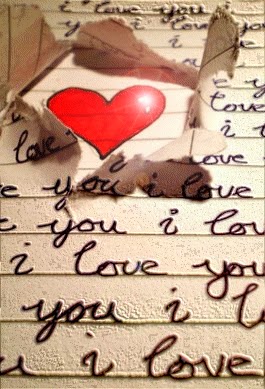 i love you i
love you
i
love
i
love
i love
e you i love
e you i love
i love you
you i l
u i love